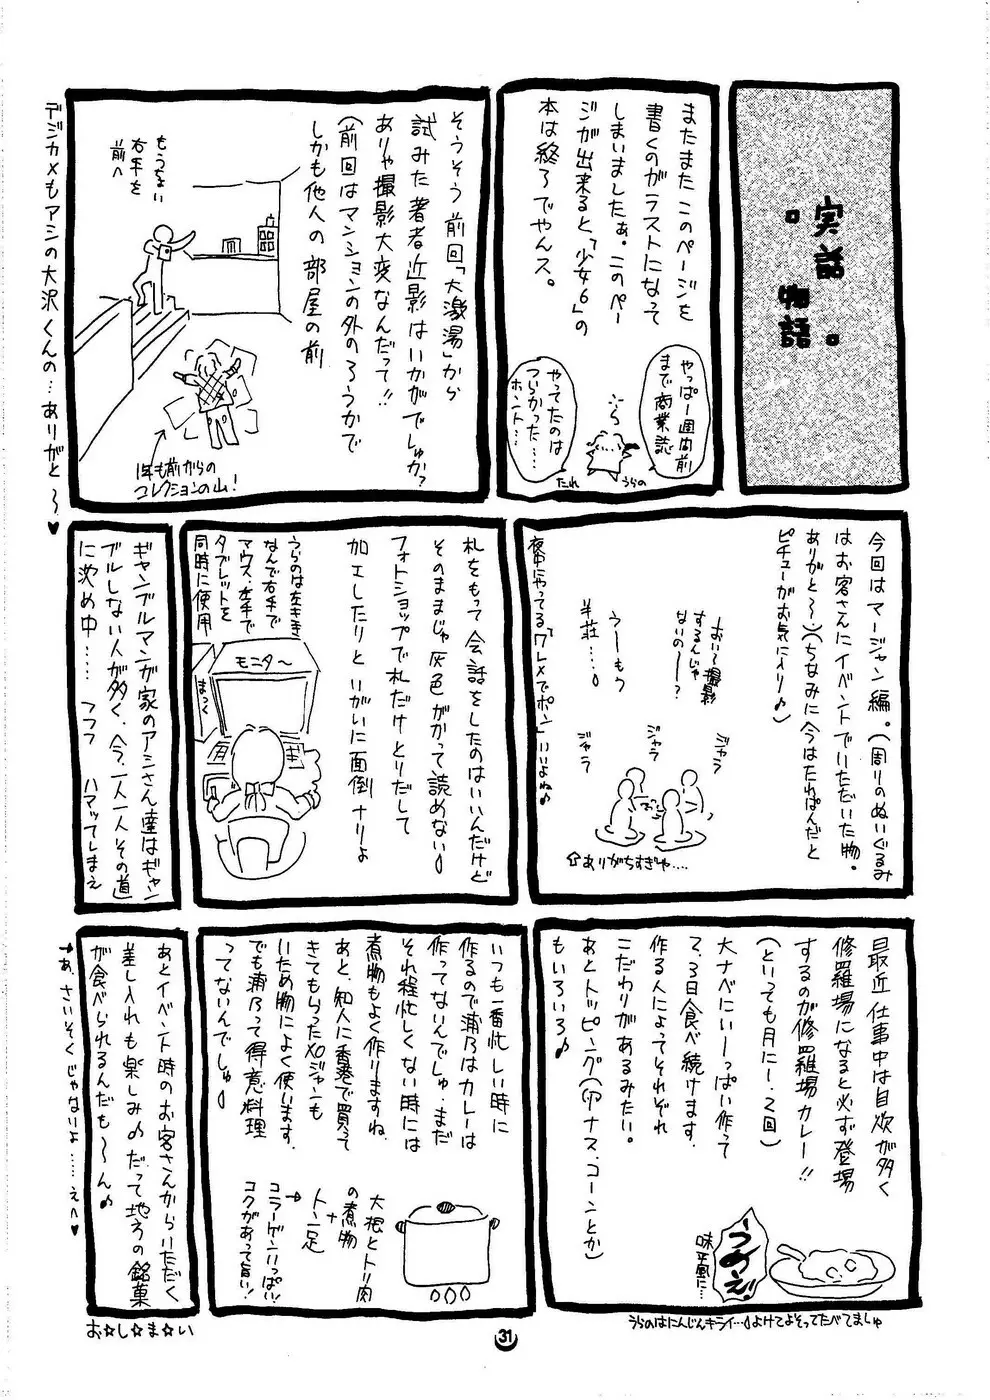 実話
物語
またまたこのページを
書くのがラストになって
しまいましたぁ。このペー
ジが出来ると「少女6」の
本は終了でやんス。
やっぱ一週間前
まで商業誌
うら
やってたのは
つらかった……
ホント…
たれ
うらの
そうそう前回「大激湯」から
試みた著者近影はいかがでしゅか?
ありゃ撮影大変なんだって!!
(前回はマンションの外のろうかで
しかも他人の部屋の前
もうちょい
右手を
前へ
1年も前からの
コレクションの山!
デジカメもアシの大沢くんの…ありがと〜♥
今回はマージャン編。(周りのぬいぐるみ
はお客さんにイベントでいただいた物。
ありがと〜。)(ちなみに今はたれぱんだと
ピチューがお気に入り♪)
おい〜撮影
するんじゃ
ないの〜?
うーもう
半荘…
ジャラ
ジャラ
ジャラ
⇧ありがちすぎゃ….
夜中にやってる「ワレメでポン」いいよね♪
札をもって会話をしたのはいいんだけど
そのままじゃ灰色がかって読めない
フォトショップで札だけとりだして
加工したりといがいに面倒ナリよ
うらのは左きき
なんで右手で
マウス、左手で
タブレットを
同時に使用
モニタ〜
まっく
ギャンブルマンガ家のアシさん達はギャン
ブルしない人が多く、今、一人一人その道
に沈め中…… フフフ ハマッてしまえ
最近仕事中は自炊が多く
修羅場になると必ず登場
するのが修羅場カレー!!
(といっても月に1〜2回)
大ナベにいーっぱい作って
2、3日食べ続けます.
作る人によってそれぞれ
こだわりがあるみたい。
あとトッピング(パイナス、コーンとか)
もいろいろ♪
うめぇ!
味平風に…
うらのはにんじんキライ…よけてよそってたべてましゅ
いつも一番忙しい時に
作るので浦乃はカレーは
作ってないんでしゅ.まだ
それ程忙しくない時には
煮物もよく作りますね.
あと、知人に香港で買って
きてもらったXOジャンも
いため物によく使います.
でも浦乃って得意料理
ってないんでしゅ
大根とトリ肉
の煮物
+
トン足
→
コラーゲンいっぱい!
コクがあって旨い!
あとイベント時のお客さんからいただく
差し入れも楽しみ♪だって地方の銘菓
が食べられるんだも〜ん♪
あ、さいそくじゃないよ……えへ♥
お☆し☆ま☆い
31